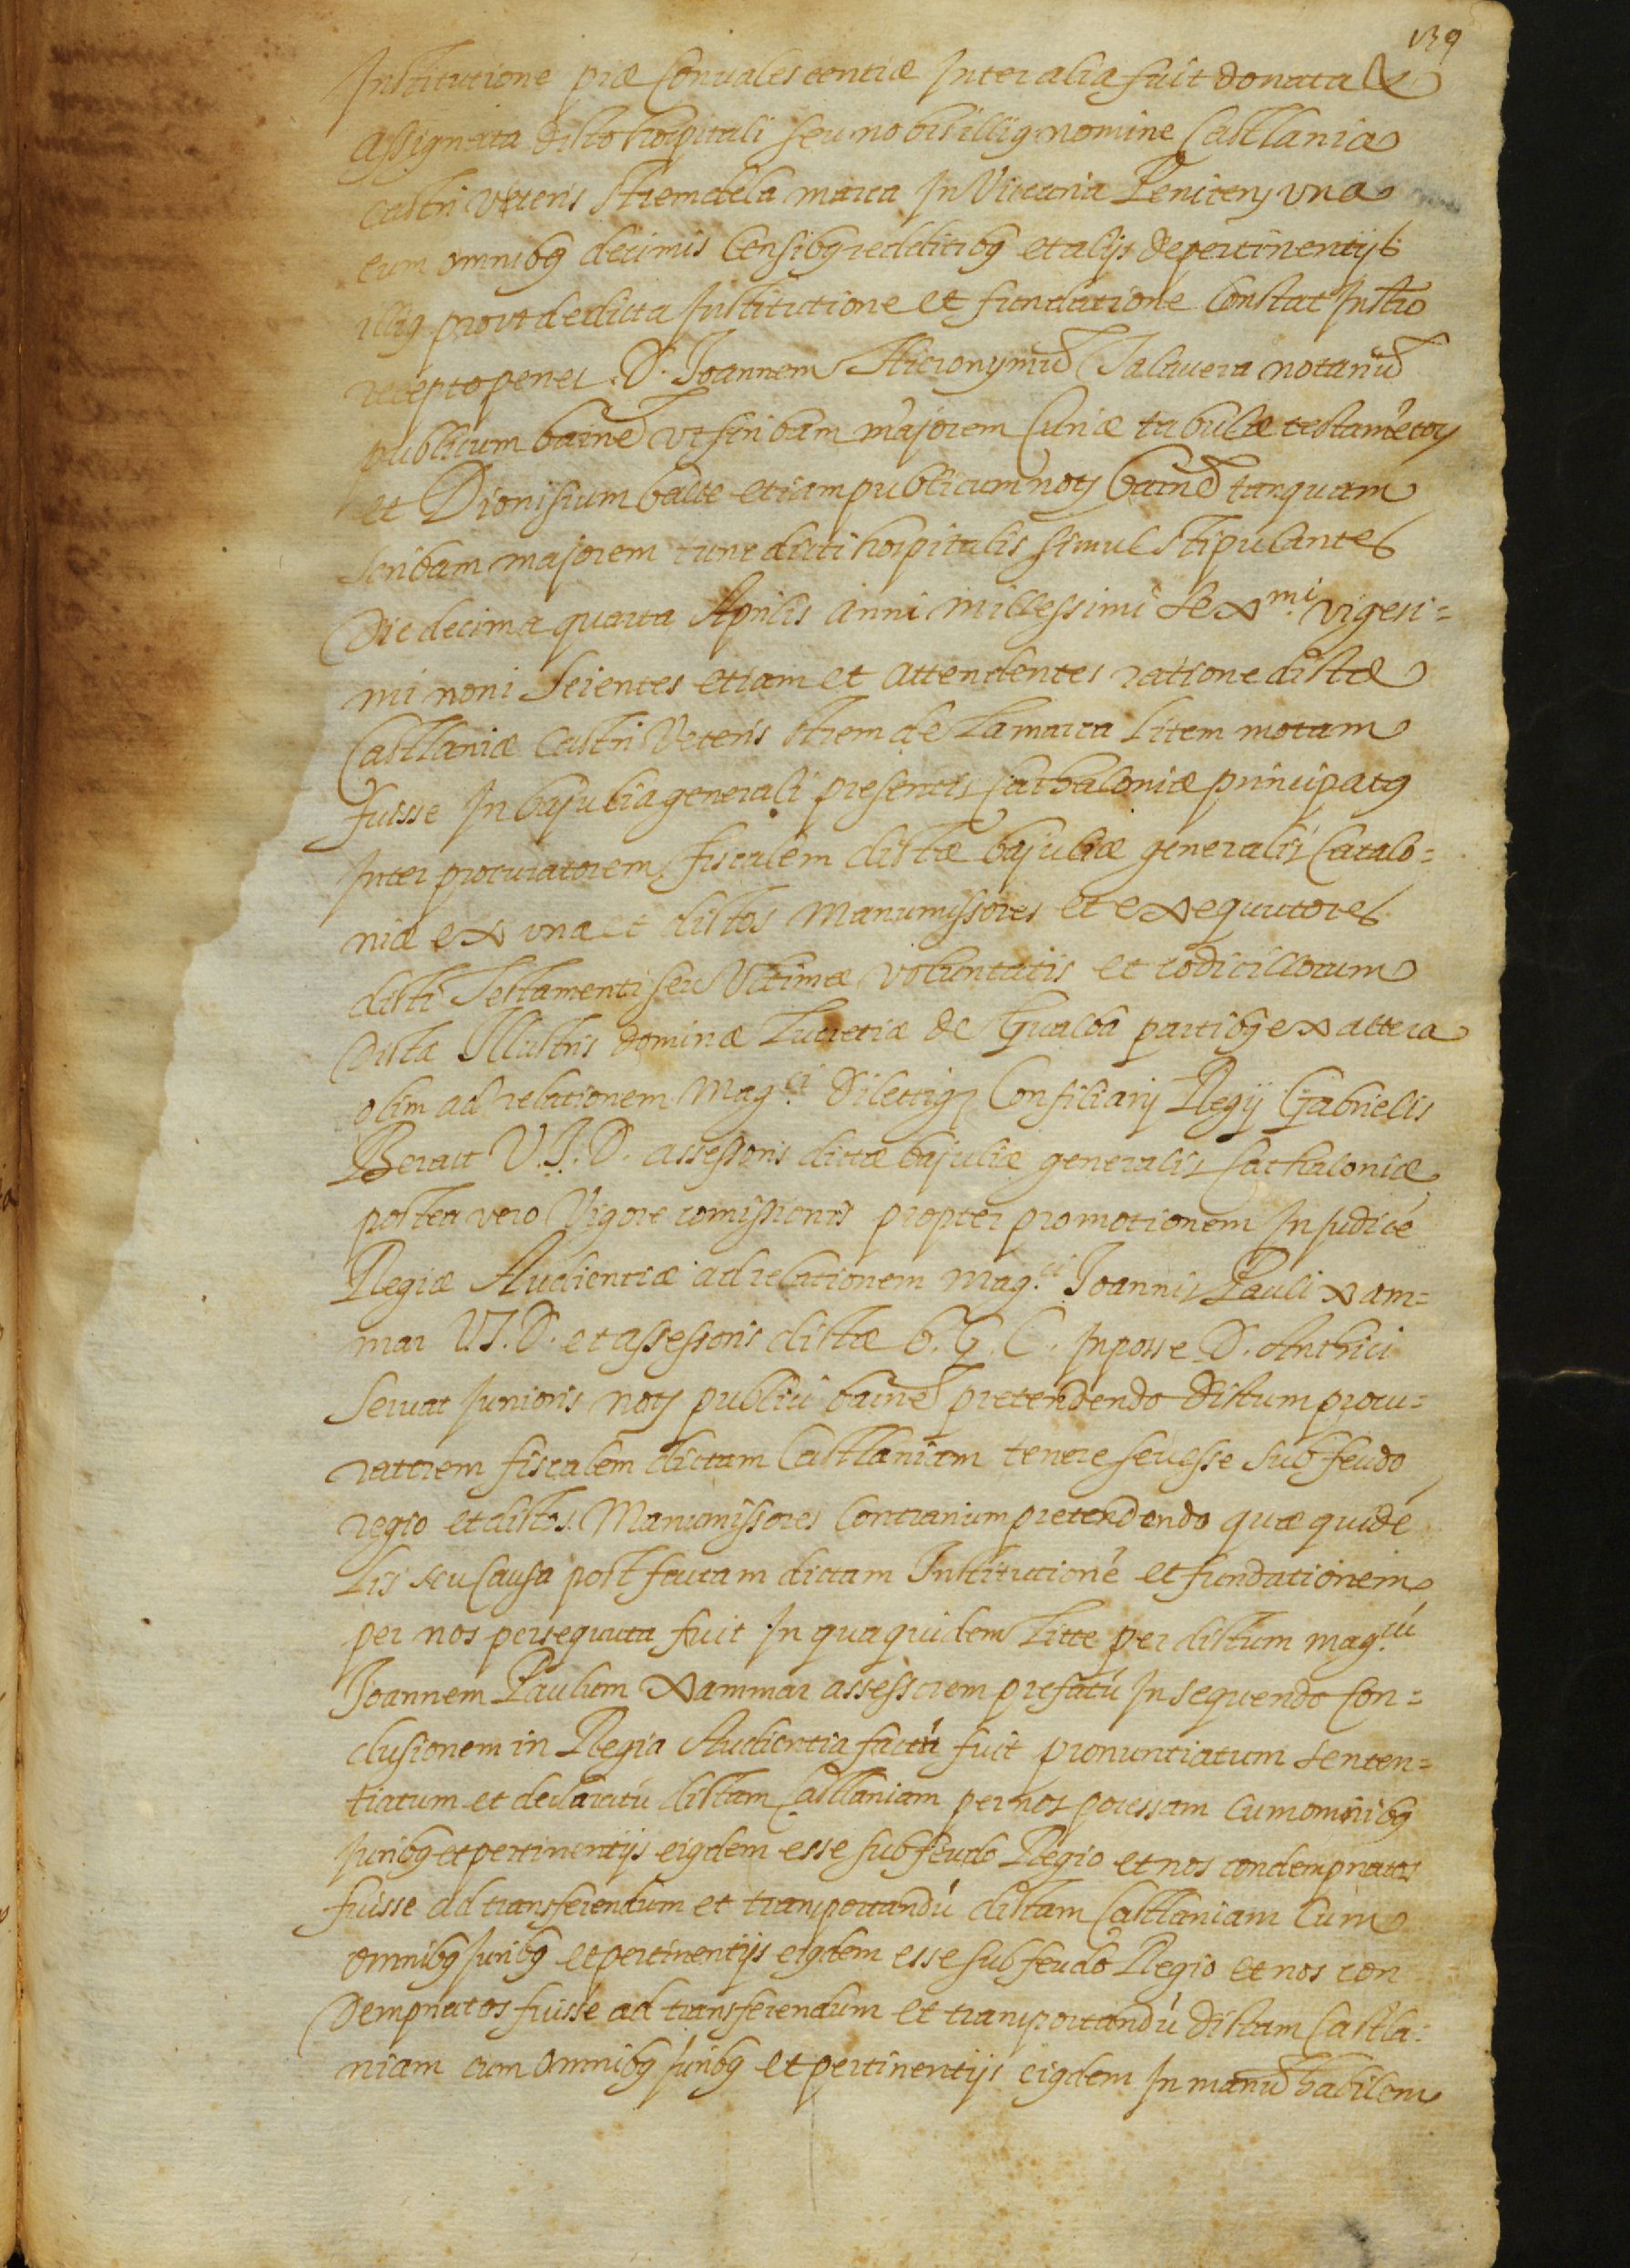 139
Institutione piæ Convalescentiæ Inter alia fuit donata &
assignata dicto hospitali seu nobis illiq nomine Castlania
castri veteris Itrem de la marca In Vicaria Peniten una
cum omnibq decimis Censibq redditibq et alijs de pertinentijs
illiq prout de dicta Institutione et fundatione Constat Instro
recepto penes D. Joannem Hieronymũ Talavera notariũ
publicum barnẽ Ut scribam majorem Curiæ tabulæ testamẽtory
et Dionisium balle etiam publicum noty barnẽ tanquam
scribam majorem tunc dicti hospitalis simul stipulantes
Die decima quarta Aprilis anni millessimi sexmi. vigesi=
mi noni Scientes etiam et attendentes ratione dictæ
Castlaniæ Castri Veteris Itrem de Lamarca Litem motam
fuisse In bajulia generali presentis Cathaloniæ principatq
Inter procuratorem fiscalem dictæ bajuliæ generalis Catalo=
niæ ex una et dictos manumissores et exequutores
dicti Testamenti seu Ultimæ voluntatis et codicillorum
dicta Illustris dominæ Lucretiæ de Gualba partibq ex altera
olim ad relationem Magci. Dilectiq Consiliarij Regij Gabrielis
Berart U.J.D. assessoris dictæ bajuliæ generalis Cathaloniæ
postea vero Vigore comissionis propter promotionem In judicẽ
Regiæ Audientiæ ad relationem magci. Joannis Pauli Xam=
mar U.J.D. et assessoris dictæ b. G. C. In posse D. Anthici
Servat Junioris noty publici barnẽ pretendendo dictum procu=
ratorem fiscalem dictam Castlaniam tenere seu esse sub feudo
regio et dictos Manumissores Contrarium pretendendo quæ quidẽ
Lis seu Causa post factam dictam Institutionẽ et fundationem
per nos persequuta fuit In qua quidem Litte per dictum magcũ.
Joannem Paulum Xammar assessorem prefatũ Insequendo Con=
clusionem in Regia Audientia factũ fuit pronuntiatum senten=
tiatum et declaratũ dictam Castlaniam per nos possessam Cum omnibq
Juribq et pertinentijs eiqdem esse sub feudo Regio et nos condempnatos
fuisse ad transferendum et transportandũ dictam Castlaniam Cum
omnibq Juribq et pertinentijs eiqdem esse sub feudo Regio et nos con
Dempnatos fuisse ad transferendum et transportandũ dictam Castla=
niam cum omnibq Juribq et pertinentijs eiqdem In manũ habilem